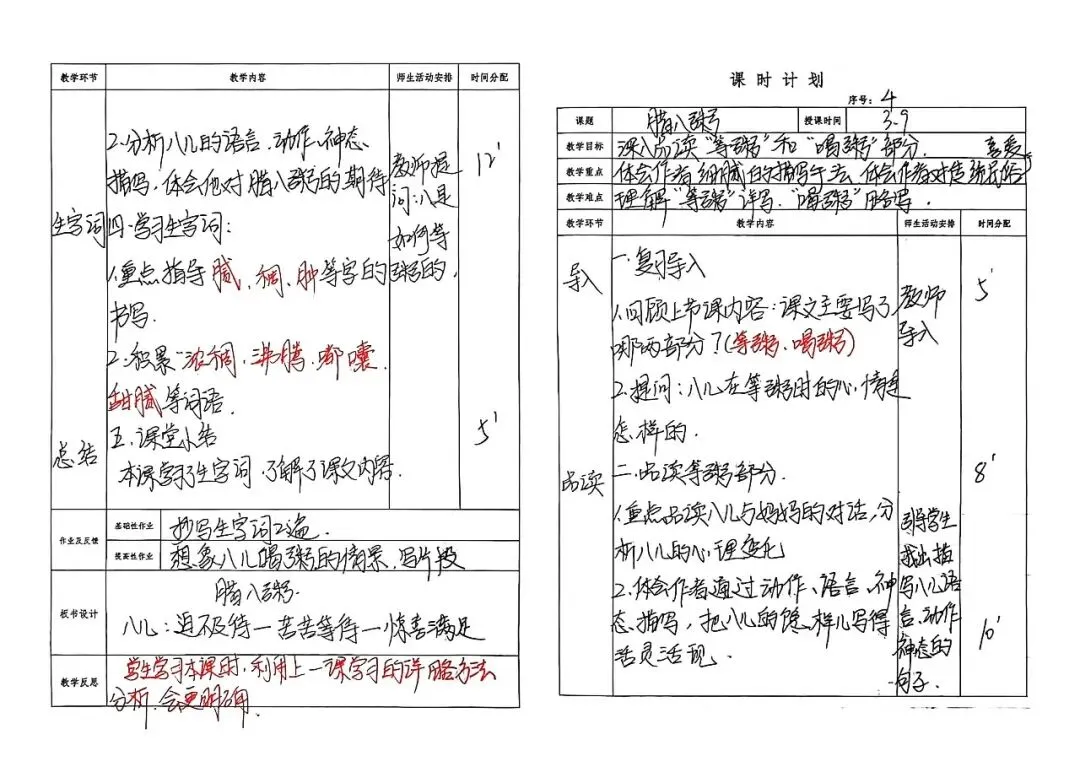 教学环节 教学内容 师生活动安排 时间分配
2.分析八儿的语言、动作、神态
描写,体会他对腊八粥的期待
教师提
问:八是
如何等
粥的.
12'
生字词
四.学习生字词:
1.重点指导腻、稠、肿等字的
书写.
2.积累“浓稠、沸腾、嘟囔、
甜腻等词语.
总结
五.课堂小结
本课学习了生字词,了解了课文内容.
5'
作业及反馈
基础性作业 抄写生字词2遍.
提高性作业 想象八儿喝粥的情景,写片段
板书设计
腊八粥.
八儿:迫不及待—苦苦等待—惊喜满足
教学反思
学生学习本课时,利用上一课学习的详略方法
分析,会更明确.
课时计划
序号:4
课题 腊八粥 授课时间 3.9
教学目标 深入品读“等粥”和“喝粥”部分. 喜爱
教学重点 体会作者细腻的描写手法,体会作者对传统民俗
教学难点 理解“等粥”详写、“喝粥”略写.
教学环节 教学内容 师生活动安排 时间分配
导入
一.复习导入
1.回顾上节课内容:课文主要写了
哪两部分?(等粥、喝粥)
2.提问:八儿在等粥时的心情是
怎样的.
教师
导入
5'
品读
二.品读等粥部分.
1.重点品读八儿与妈妈的对话,分
析八儿的心理变化
2.体会作者通过动作、语言、神
态描写,把八儿的馋样儿写得
活灵活现.
引导学生
找出描
写八儿语
言、动作
神态的
句子.
8'
10'